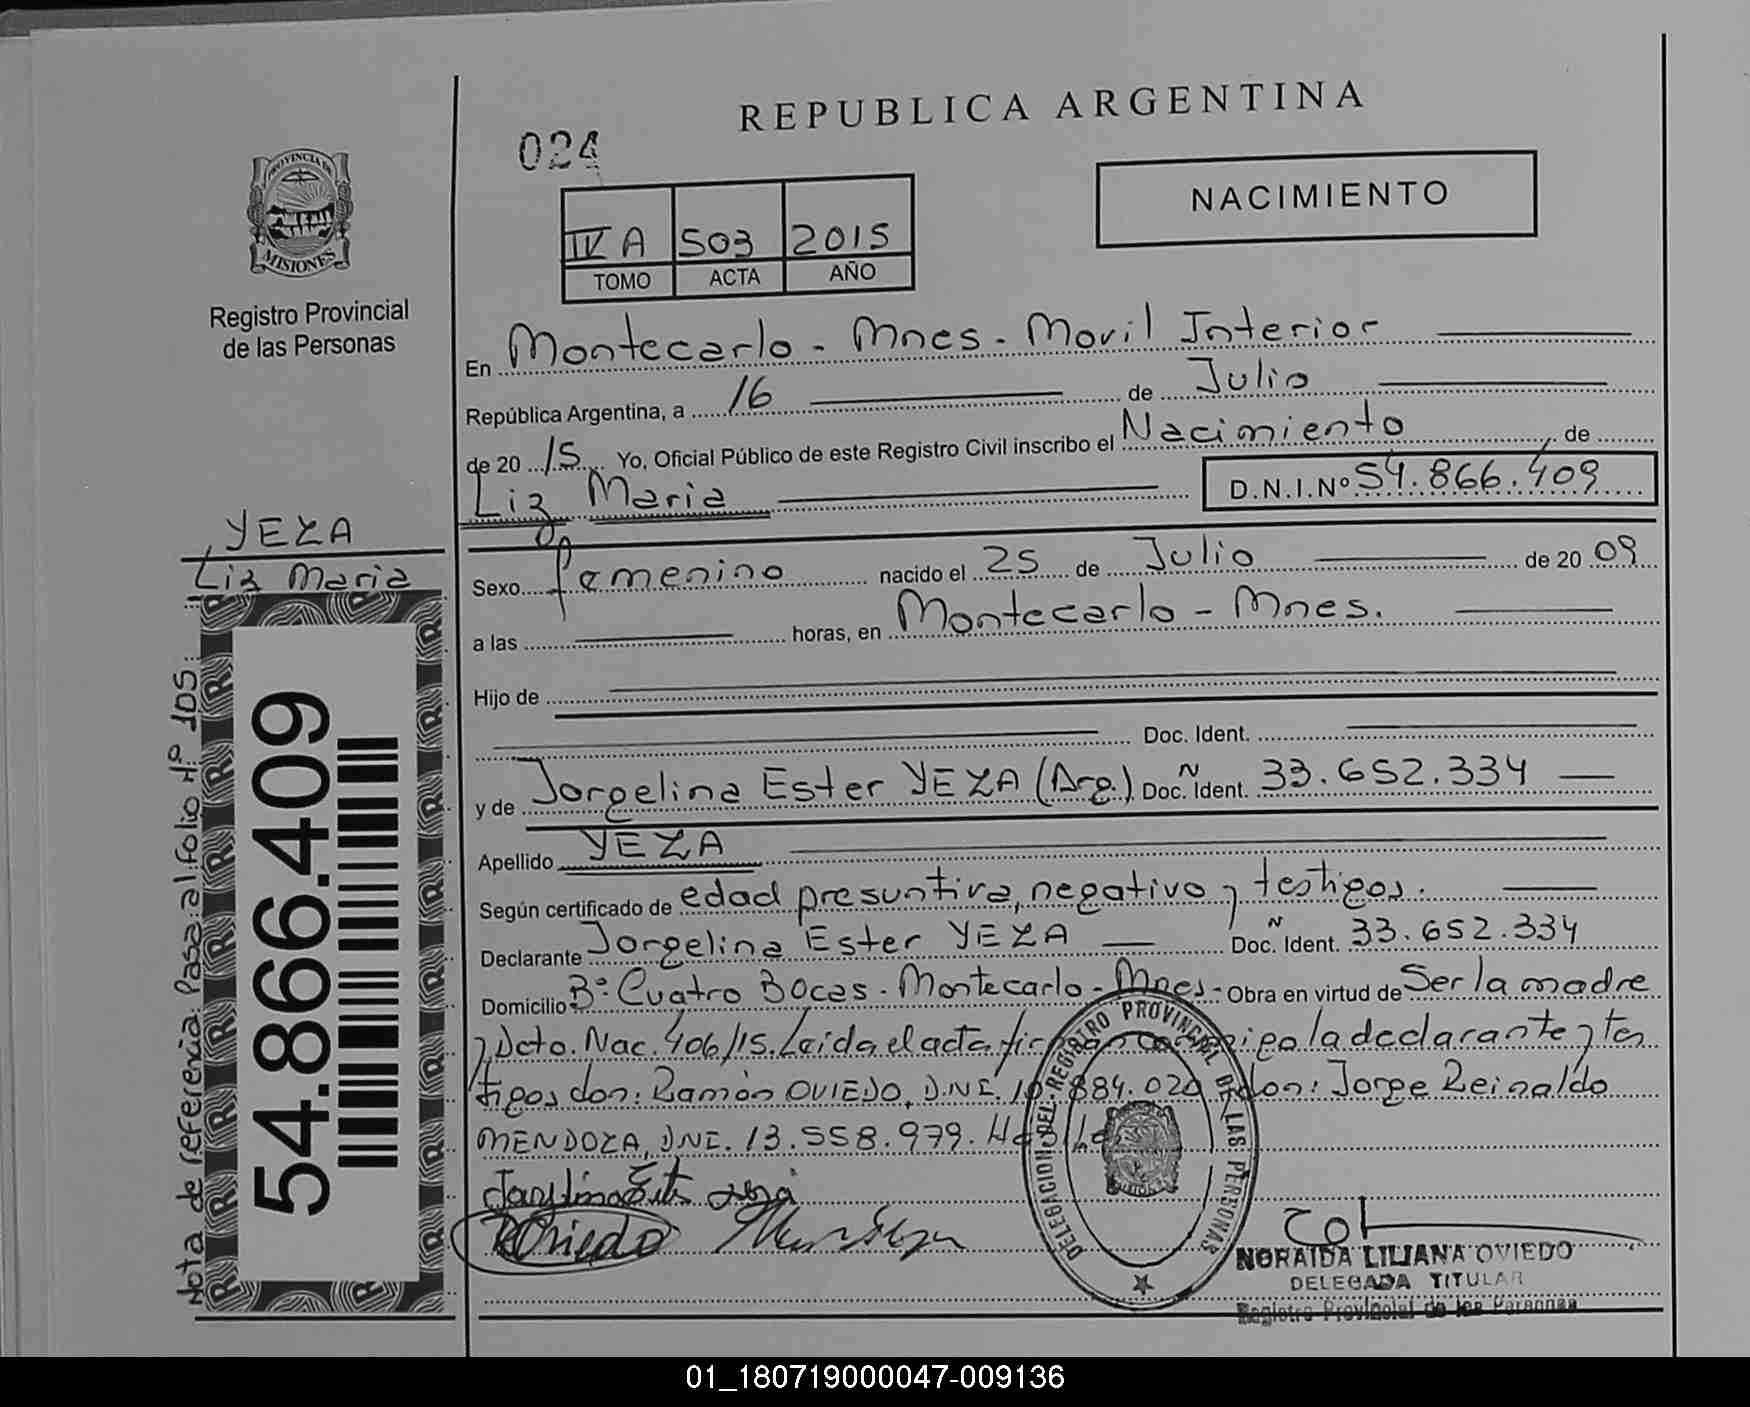 REPUBLICA ARGENTINA
024
NACIMIENTO
PROVINCIA DE
MISIONES
Registro Provincial
de las Personas
IV A 503 2015
TOMO ACTA AÑO
En Montecarlo - Mnes - Movil Interior
República Argentina, a 16 de Julio
de 20 15 Yo, Oficial Público de este Registro Civil inscribo el Nacimiento, de
Liz Maria D.N.I.Nº 54.866.409
YEZA
Liz Maria
Sexo femenino nacido el 25 de Julio de 20 09
a las horas, en Montecarlo - Mnes.
Hijo de
Doc. Ident.
y de Jorgelina Ester YEZA (Arg.) Doc. Ñ Ident. 33.652.334
Apellido YEZA
Según certificado de edad presuntiva, negativo y testigos.
Declarante Jorgelina Ester YEZA Doc. Ñ Ident. 33.652.334
Domicilio Bº Cuatro Bocas - Montecarlo - Mnes - Obra en virtud de Ser la madre
y Dcto. Nac. 406/15. Leida el acta la declarante y tes
tigos don: Ramón OVIEDO, DNI. 884.020 don: Jorge Reinaldo
MENDOZA, DNI. 13.558.979.
Oviedo Mendoza
DELEGACION DEL REGISTRO PROVINCIAL DE LAS PERSONAS
NORAIDA LILIANA OVIEDO
DELEGADA TITULAR
Registro Provincial de las Personas
Nota de referencia: Pasa al folio Nº 105.
54.866.409
01_180719000047-009136